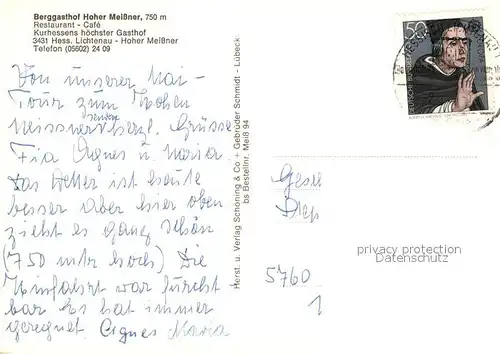 Berggasthof Hoher Meißner, 750 m
Restaurant - Café
Kurhessens höchster Gasthof
3431 Hess. Lichtenau - Hoher Meißner
Telefon (05602) 24 09
Von unserer Mai-
Tour zum Hohen
Meissner herzl. Grüsse
senden
Agnes u. Maria.
Das Wetter ist heute
besser aber hier oben
zieht es ganz schön
(750 mtr hoch) Die
Hinfahrt war furcht
bar Es hat immer
geregnet. Agnes Maria
Herst. u. Verlag Schöning & Co + Gebrüder Schmidt - Lübeck
bs Bestellnr. Meiß 94
50
privacy protection
Datenschutz
5760
1